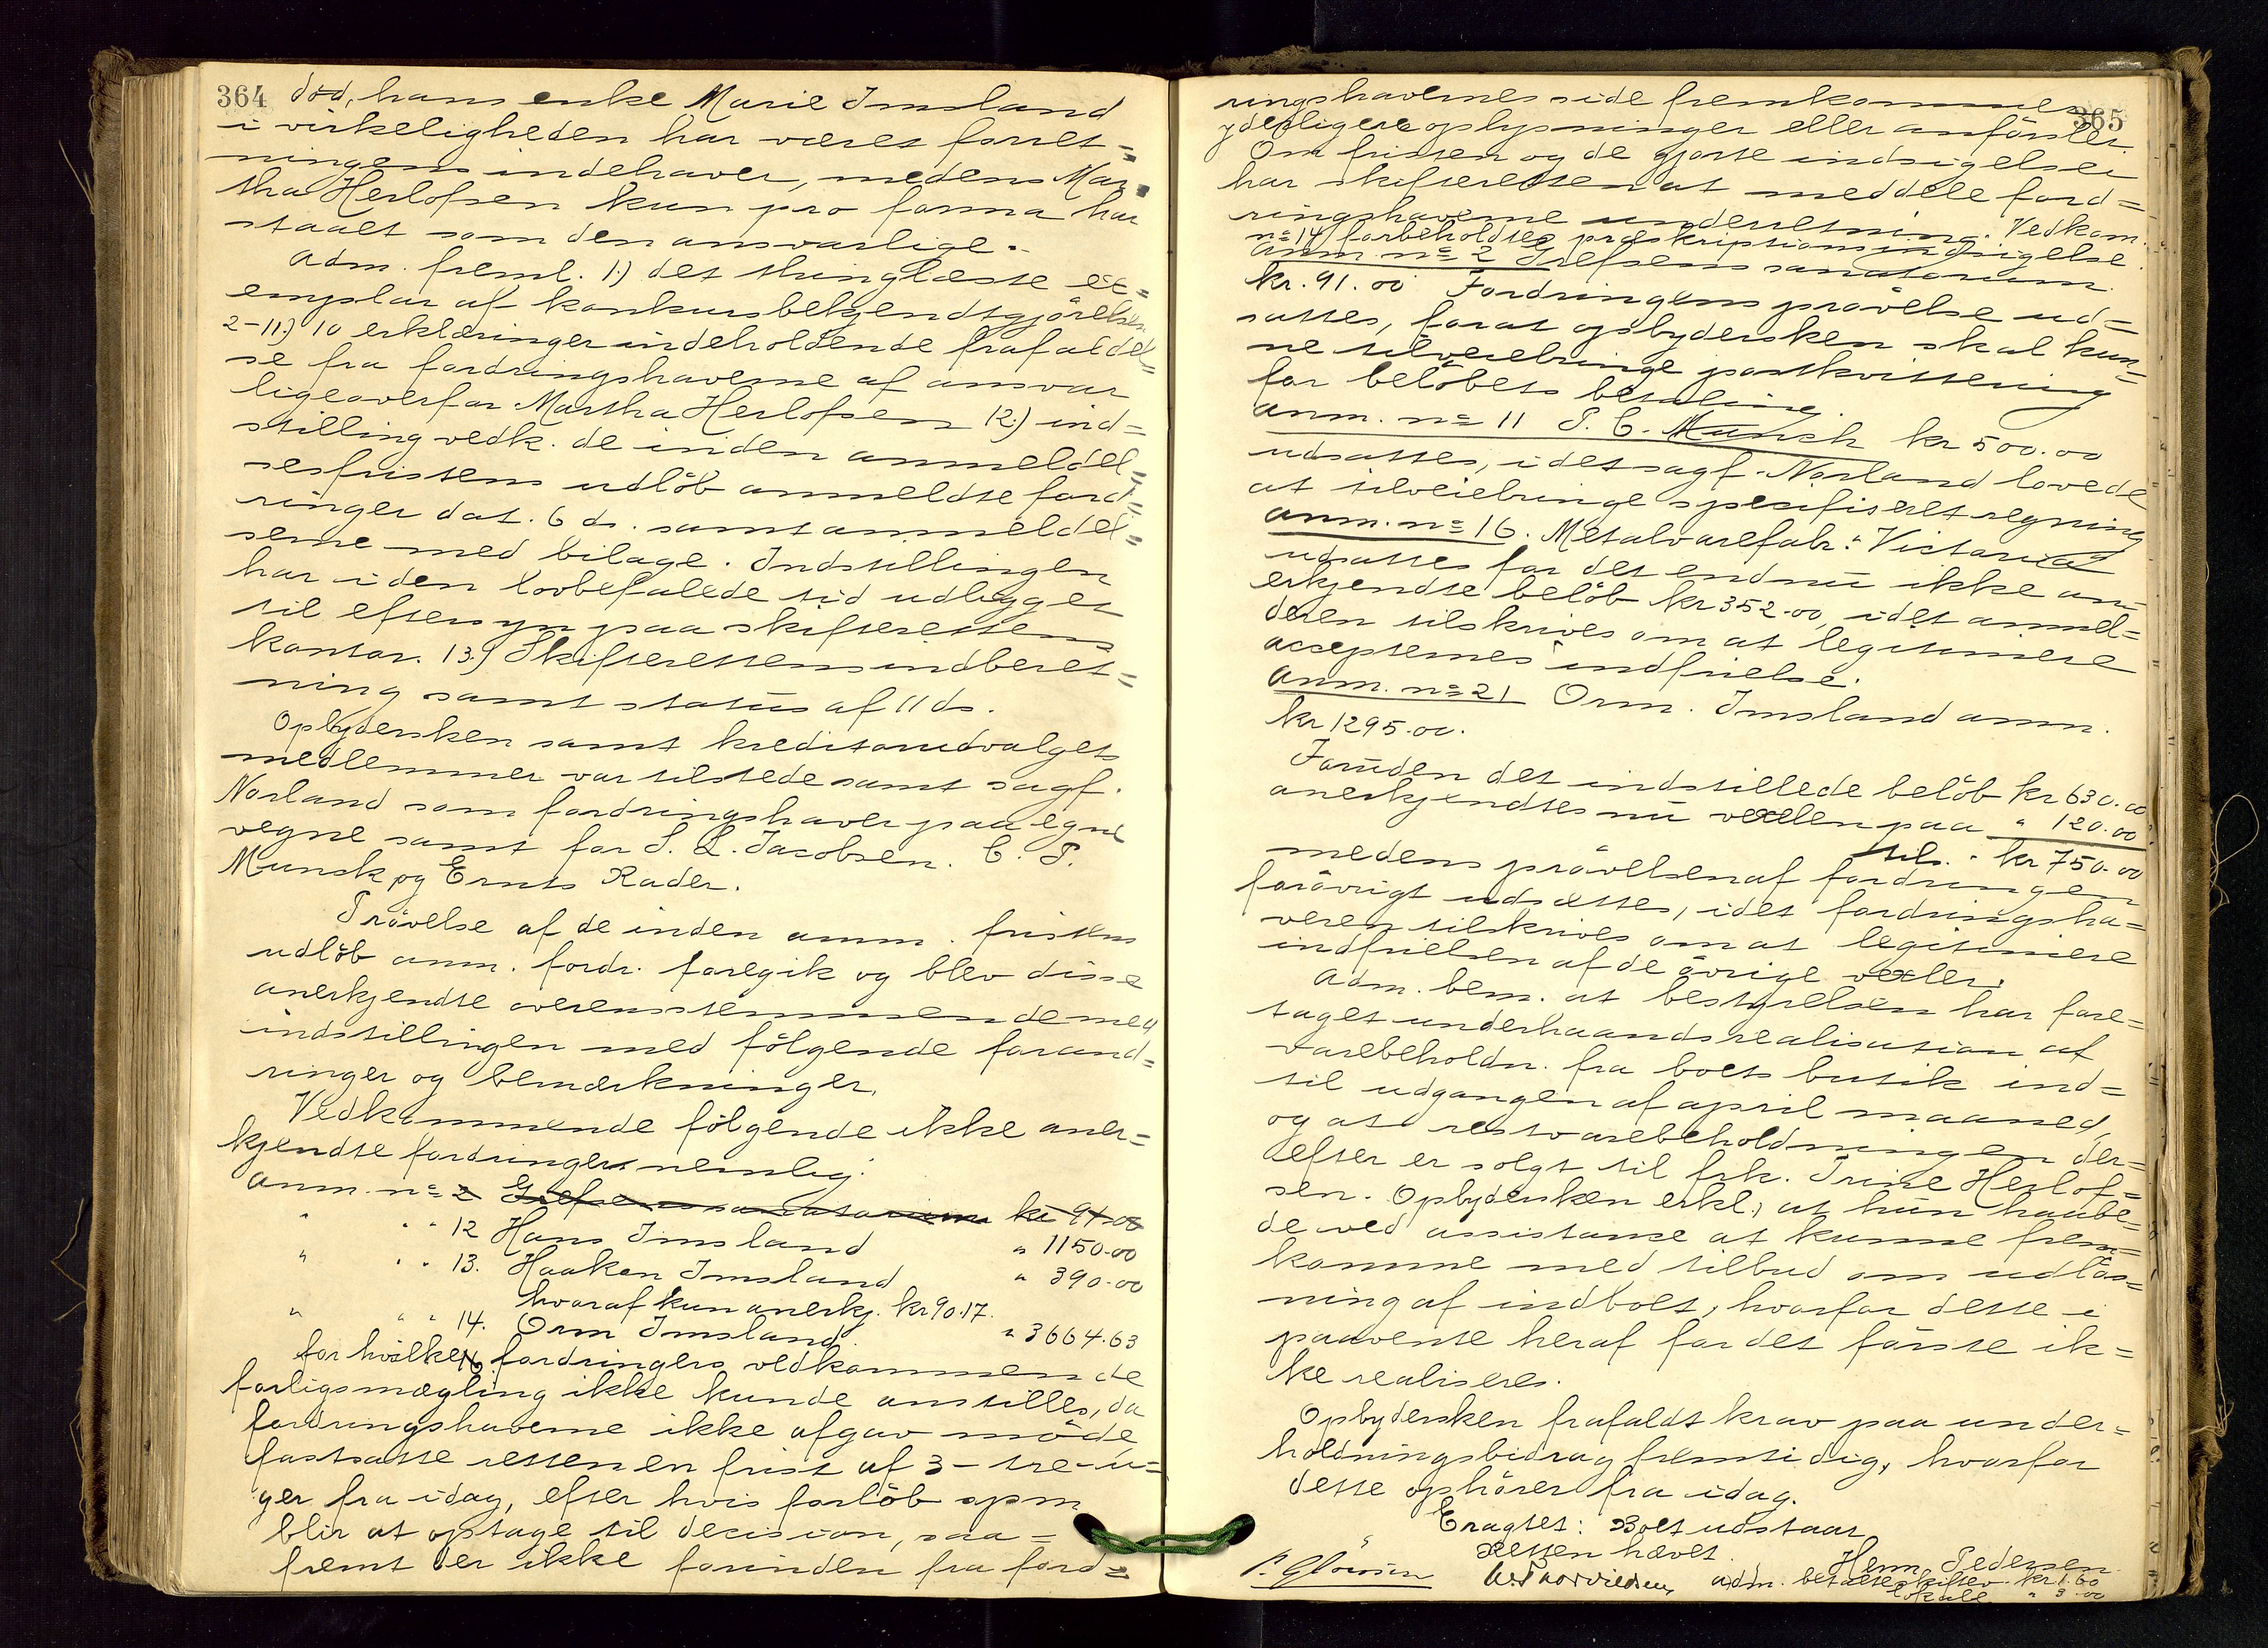 364
død, hans enke Marie Imsland
i virkeligheden har været forret=
ningens indehaver, medens Mar=
tha Herlofsen kun pro forma har
staaet som den ansvarlige.
Adm. freml. 1.) det thinglæste ex=
emplar af konkursbekjendtgjørelsen
2-11.) 10 erklæringer indeholdende frafaldel=
se fra fordringshaverne af ansvar
ligeoverfor Martha Herlofsen 12.) ind=
stilling vedk. de inden anmeldel=
sesfristens udløb anmeldte ford=
ringer dat. 6 ds. samt anmeldel=
serne med bilage. Indstillingen
har i den lovbefalede tid udligget
til eftersyn paa skifterettens
kontor. 13.) Skifterettens indberet=
ning samt status af 11 ds.
Opbydersken samt kreditorudvalgets
medlemmer var tilstede samt sagf.
Norland som fordringshaver paa egne
vegne samt for S. L. Jacobsen. C. P.
Munsk og Ernts Rader.
Prøvelse af de inden anm. fristens
udløb anm. fordr. foregik og blev disse
anerkjendte overensstemmende med
indstillingen med følgende forand=
ringer og bemærkninger.
Vedkommende følgende ikke aner=
kjendte fordringer nemlig:
Anm. no 2 Grefsens sanatorium kr 91.00
" " " 12 Hans Imsland " 1150.00
" " " 13. Haakon Imsland " 390.00
hvoraf kun anerkj. kr 90.17.
" " " 14. Orm Imsland " 3664.63
for hvilken fordringers vedkommende
forligsmægling ikke kunde anstilles, da
fordringshaverne ikke afgav møde,
fastsatte retten en frist af 3 - tre - u=
ger fra idag, efter hvis forløb spm
blir at optage til decision, saa=
fremt der ikke forinden fra ford=
365
ringshavernes side fremkommer
yderligere oplysninger eller anførsler.
Om fristen og de gjorte indsigelser
har skifteretten at meddele ford=
ringshaverne underretning. Vedkom.
no 14 forbeholdtes præskriptionsindsigelse.
Anm. no 2 Grefsens sanatorium
kr. 91.00 Fordringens prøvelse ud=
sattes, forat opbydersken skal kun=
ne tilveiebringe postkvittering
for beløbets betaling.
Anm. no 11 P. C. Munsch kr 500.00
udsattes, idet sagf. Norland lovede
at tilveiebringe spesifiseret regning
Anm. no 16. Metalvarefabr. "Victoria"
udsattes for det endnu ikke an=
erkjendte beløb kr 352.00, idet anmel=
deren tilskrives om at legitimere
accepternes indfrielse.
Anm. no 21 Orm. Imsland anm.
kr 1295.00.
Foruden det indstillede beløb kr 630.00
anerkjendtes nu vexlen paa " 120.00
tils. kr 750.00
medens prøvelsen af fordringen
forøvrigt udsættes, idet fordringsha=
veren tilskrives om at legitimere
indfrielsen af de øvrige vexler.
Adm. bem. at bestyrelsen har fore=
taget underhaandsrealisation af
varebeholdn. fra boets butik ind=
til udgangen af april maaned,
og at restvarebeholdningen der=
efter er solgt til frk. Trine Herlof=
sen. Opbydersken erkl., at hun haabe=
de ved assistanse at kunne frem=
komme med tilbud om udløs=
ning af indboet, hvorfor dette i
paavente heraf for det første ik=
ke realiseres.
Opbydersken frafaldt krav paa under=
holdningsbidrag fremtidig, hvorfor
dette ophører fra idag.
Eragtet: Boet udstaar
Retten hævet.
Herm. Pedersen
adm. betalte skiftev. kr 1.60
lokale " 3.00